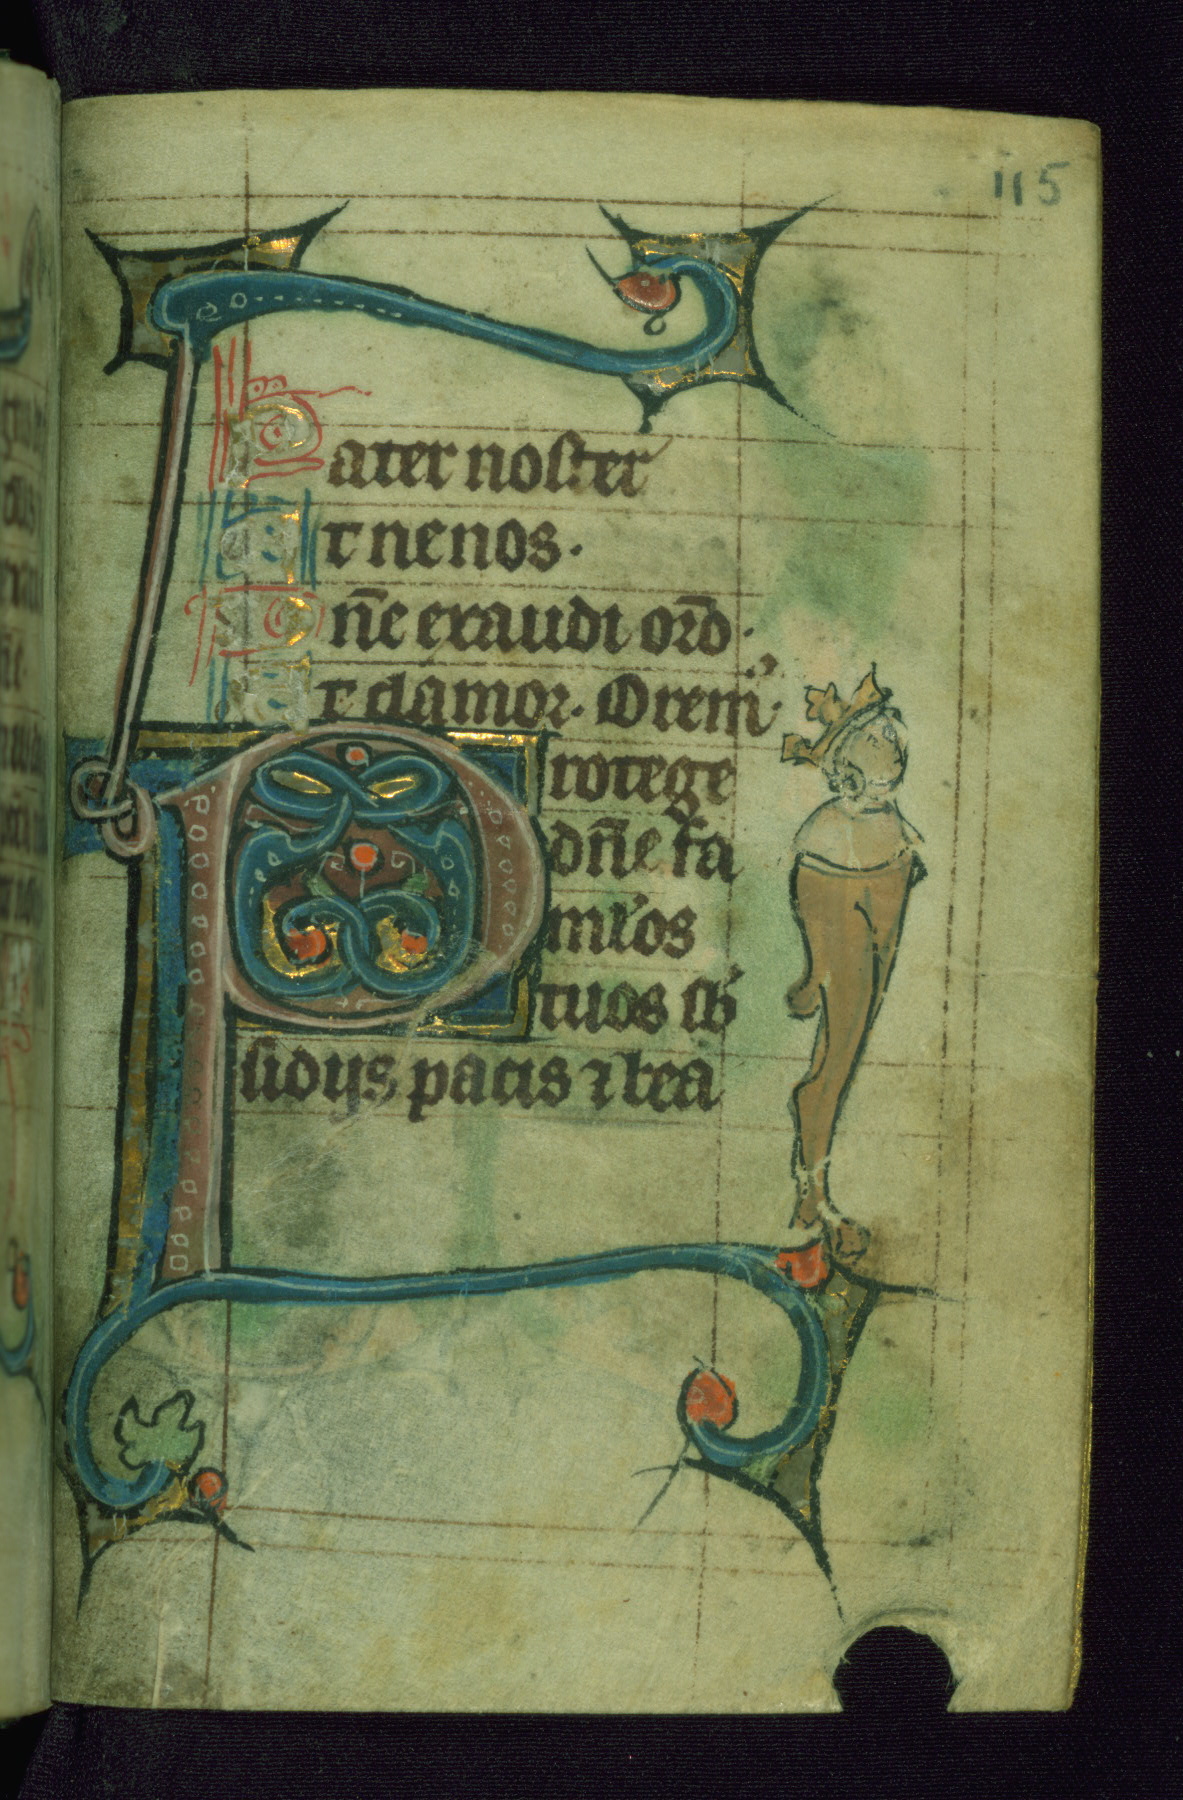 115
Pater noster
Et ne nos.
Dn̄e exaudi or̄o.
Et clamor. Orem᷒.
Protege
dn̄e fa
ml'os
tuos sb᷒
sidijs pacis ⁊ bea